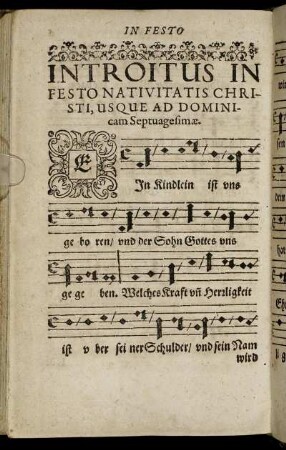 IN FESTO
INTROITUS IN
FESTO NATIVITATIS CHRI-
STI, USQUE AD DOMINI-
cam Septuagesimæ.
E
In Kindlein ist vns
ge bo ren/ vnd der Sohn Gottes vns
ge ge ben. Welches Kraft vñ Herrligkeit
ist v ber sei ner Schulder/ vnd sein Nam
wird